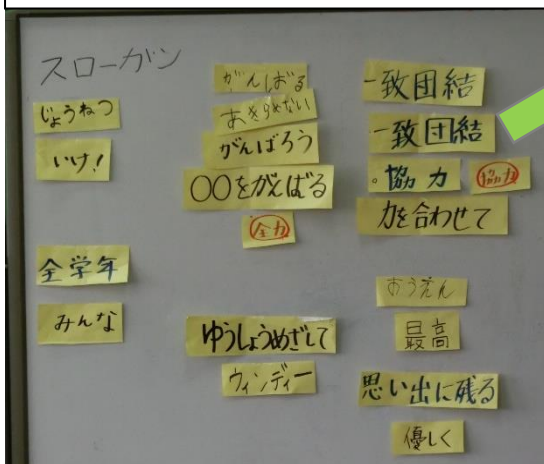 スローガン
じょうねつ
いけ!
全学年
みんな
がんばる
あきらめない
がんばろう
〇〇をがんばる
全力
ゆうしょうめざして
ウィンディー
一致団結
一致団結
・協力
協力
力を合わせて
おうえん
最高
思い出に残る
優しく